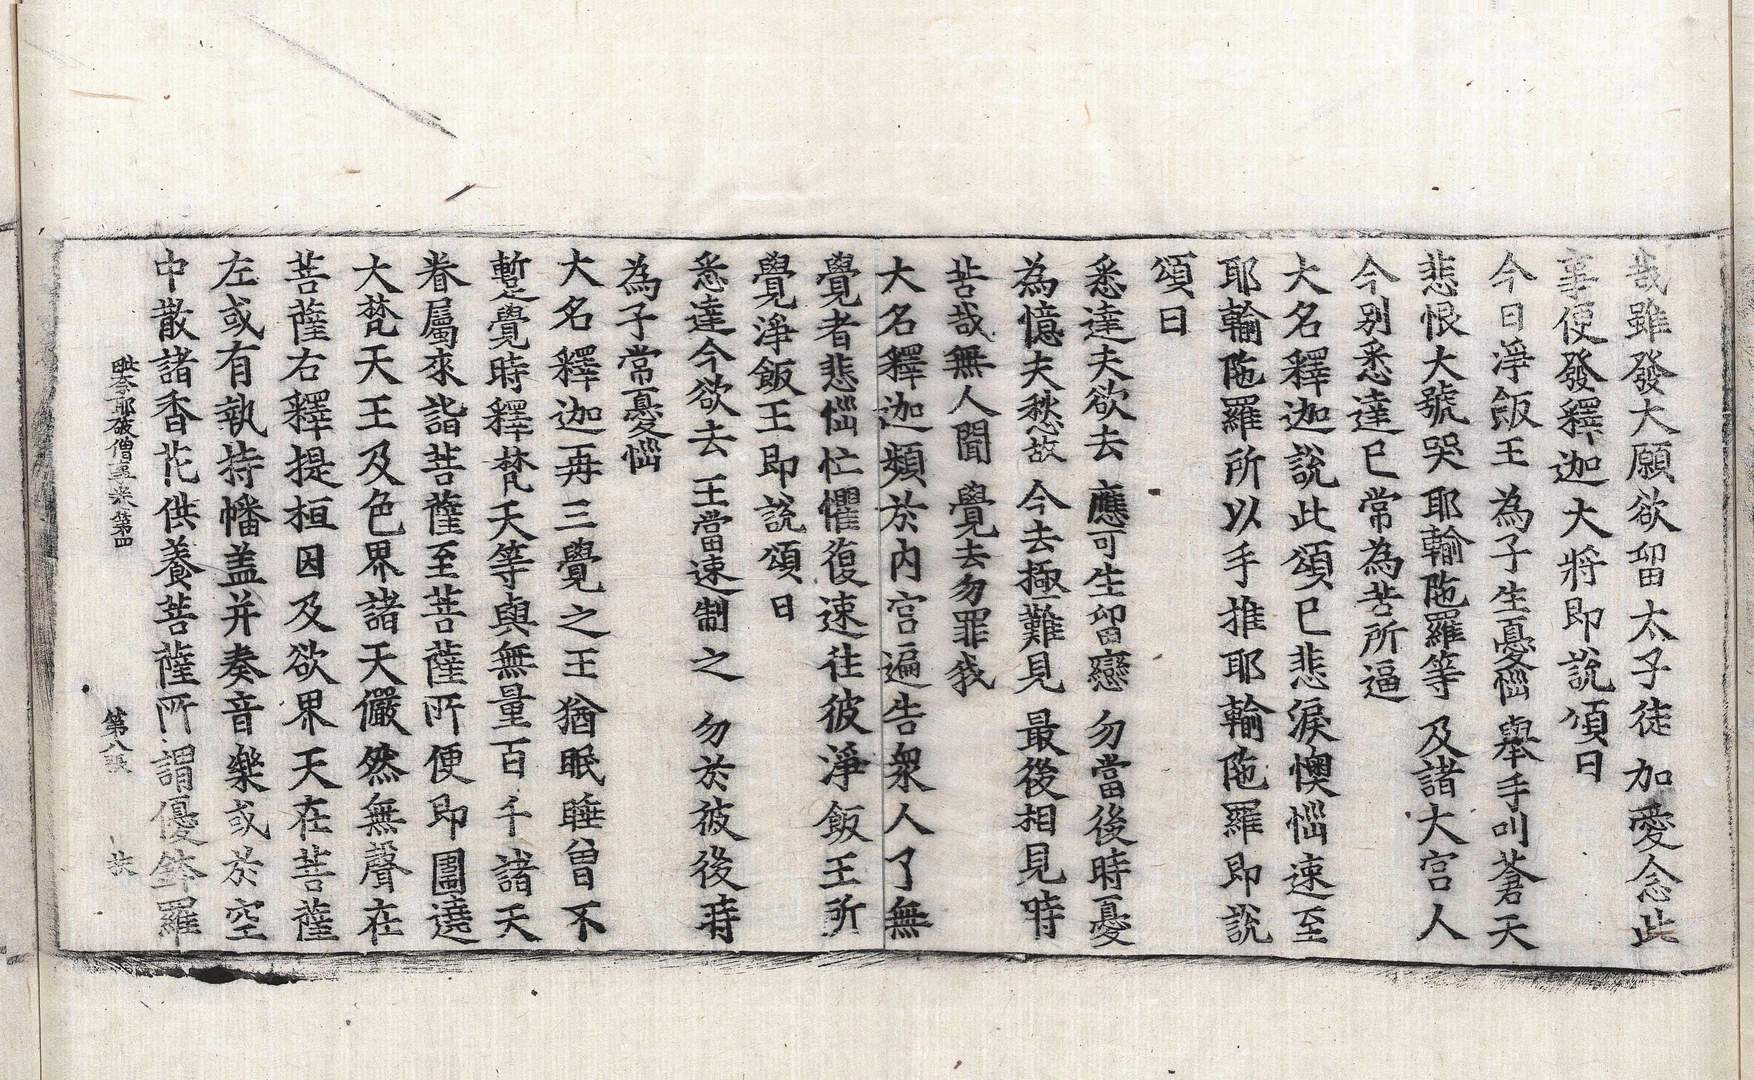 哉雖發大願欲留太子徒加愛念此
事便發釋迦大將即說頌曰
今日淨飯王 為子生憂惱 舉手叫蒼天
悲恨大號哭 耶輸陁羅等 及諸大宮人
今別悉達已 常為苦所逼
大名釋迦說此頌已悲淚懊惱速至
耶輸陁羅所以手推耶輸陁羅即說
頌曰
悉達夫欲去 應可生留戀 勿當後時憂
為憶夫愁故 今去極難見 最後相見時
苦哉無人聞 覺去勿罪我
大名釋迦頻於內宮遍告衆人了無
覺者悲惱忙懼復速往彼淨飯王所
覺淨飯王即說頌曰
悉達今欲去 王當速制之 勿於彼後時
為子常憂惱
大名釋迦再三覺之王猶眠睡曾不
蹔覺時釋梵天等與無量百千諸天
眷屬來詣菩薩至菩薩所便即圍遶
大梵天王及色界諸天儼然無聲在
菩薩右釋提桓因及欲界天在菩薩
左或有執持幡盖并奏音樂或於空
中散諸香花供養菩薩所謂優鉢羅
毗奈耶破僧事卷第四 第八張 扶